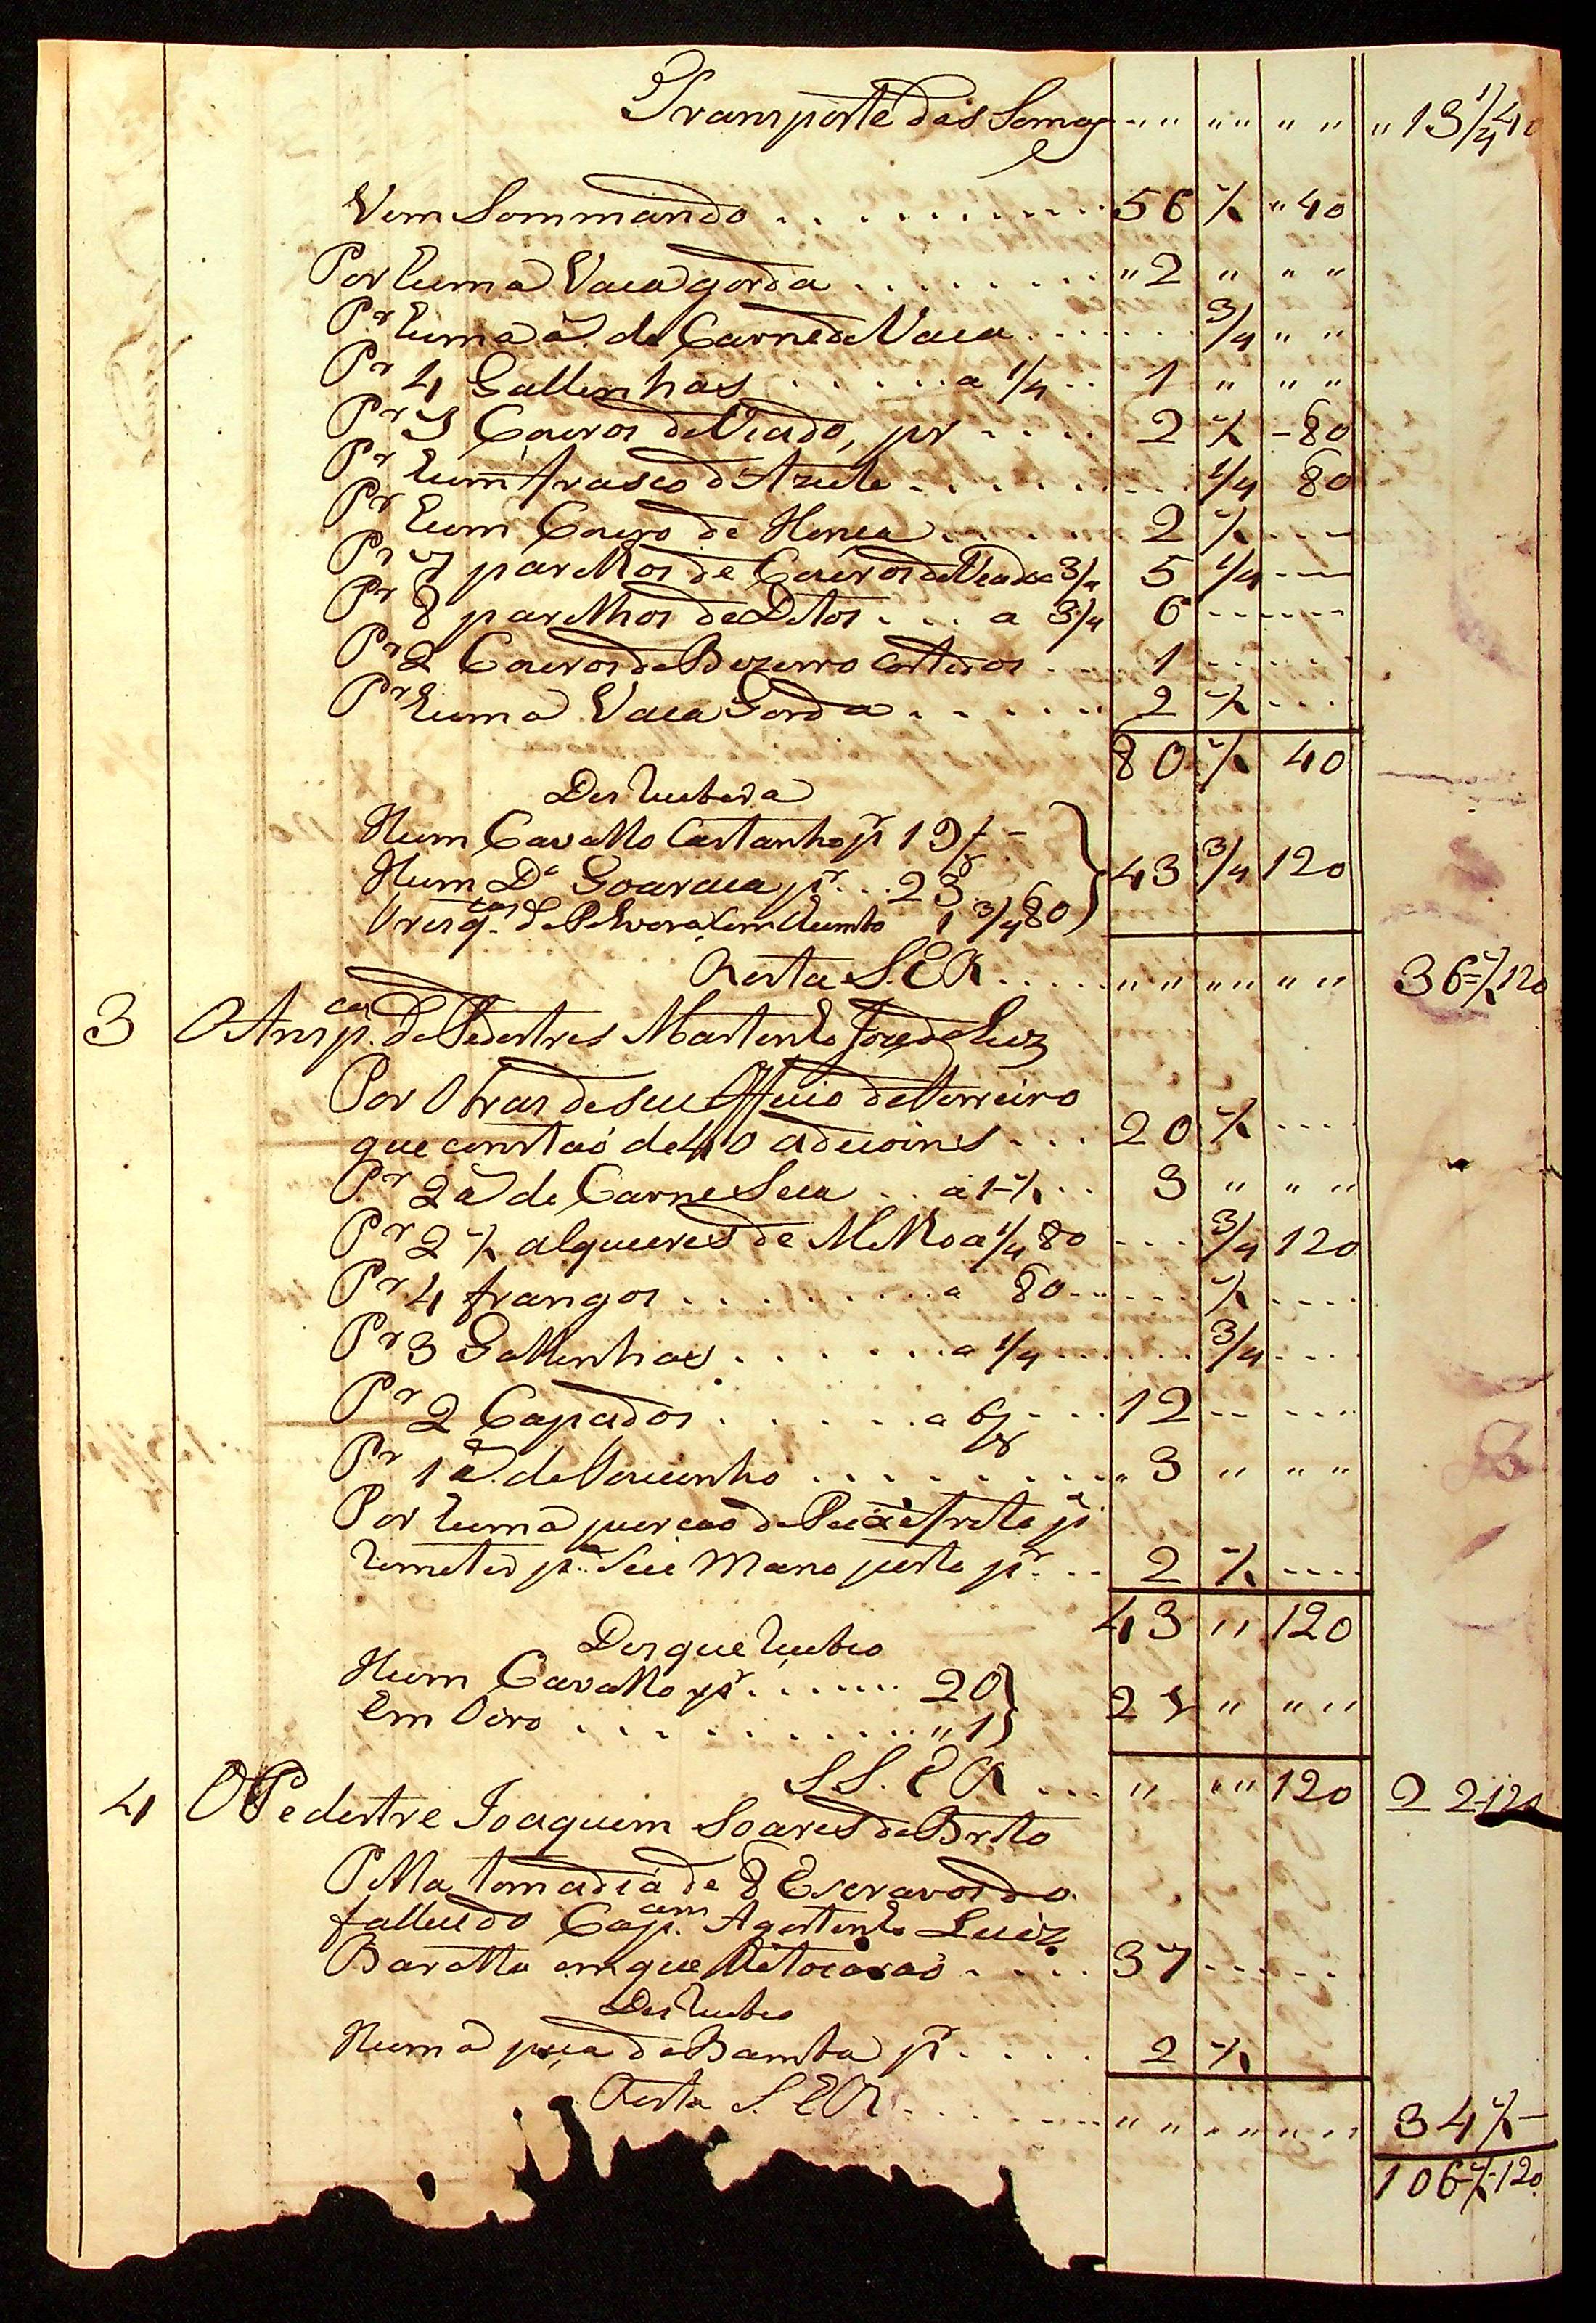 Transporte das Somas " " " " " " " 13 1/4 40
Vem Sommando 56 ½ " 40
Por huma Vaca gorda " 2 " " "
Pr huma @ de Carne de Vaca 3/4 " "
Pr 4 Gallinhas a 1/4 1 " " "
Pr 5 Couros de Viado, pr 2 ½ - 80
Pr hum frasco d'Azeite 1/4 80
Pr hum Couro de Honca 2 ½
Pr 7 parelhos de Couros de Viado a 3/4 5 1/4
Pr 8 parelhos de Ditos a 3/4 6
Pr 2 Couros de Bezerro Cortidos 1
Pr huma Vaca Gorda 2 ½
80 ½ 40
Des Recebera
Hum Cavallo Castanho pr 19/8 -
Hum Do Goaraca pr 23 43 3/4 120
de Polvora Chumbo 1 3/4 80
Resta S. E. R. " " " " " " 36 = ½ 120
3 O Ansp.ca de Pedestres Martinho Joze da Luz
Por Obras de seu Officio de Ferreiro
que constaõ de 40 adicoins 20 ½
Pr 2 @ de Carne Seca a 1-½ 3 " " "
Pr 2 ½ alqueires de Milho a 1/4 80 3/4 120
Pr 4 frangos a 80 ½
Pr 3 Gallinhas a 1/4 3/4
Pr 2 Capados a 6/8 12
Pr 1 @ de Toucinho " 3 " " "
Por huma porcao de Peixe frito pa
remeter pa Seu Mano justo pr 2 ½
43 " 120
Des que recebeo
Hum Cavallo pr 20
Em Oiro " 1 21 " " "
S. S. E. R. " " " 120 22-120
4 O Pedestre Joaquim Soares de Brito
Pella tomadia de 8 Escravos do
fallecido Cap.am Agostinho Luiz
Baratta em que lhe tocaraõ 37
Des Recebeo
Huma peça de Bamba pr 2 ½
Resta S. E. R. " " " " " " 34 ½ -
106-½-120